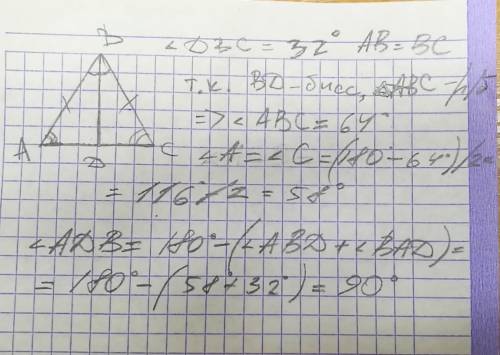 B
∠DBC = 32° AB = BC
т.к. BD-бисс, △ABC - р/б
=> ∠ABC = 64°
A D C
∠A = ∠C = (180 - 64°)/2 =
= 116°/2 = 58°
∠ADB = 180° - (∠ABD + ∠BAD) =
= 180° - (58° + 32°) = 90°